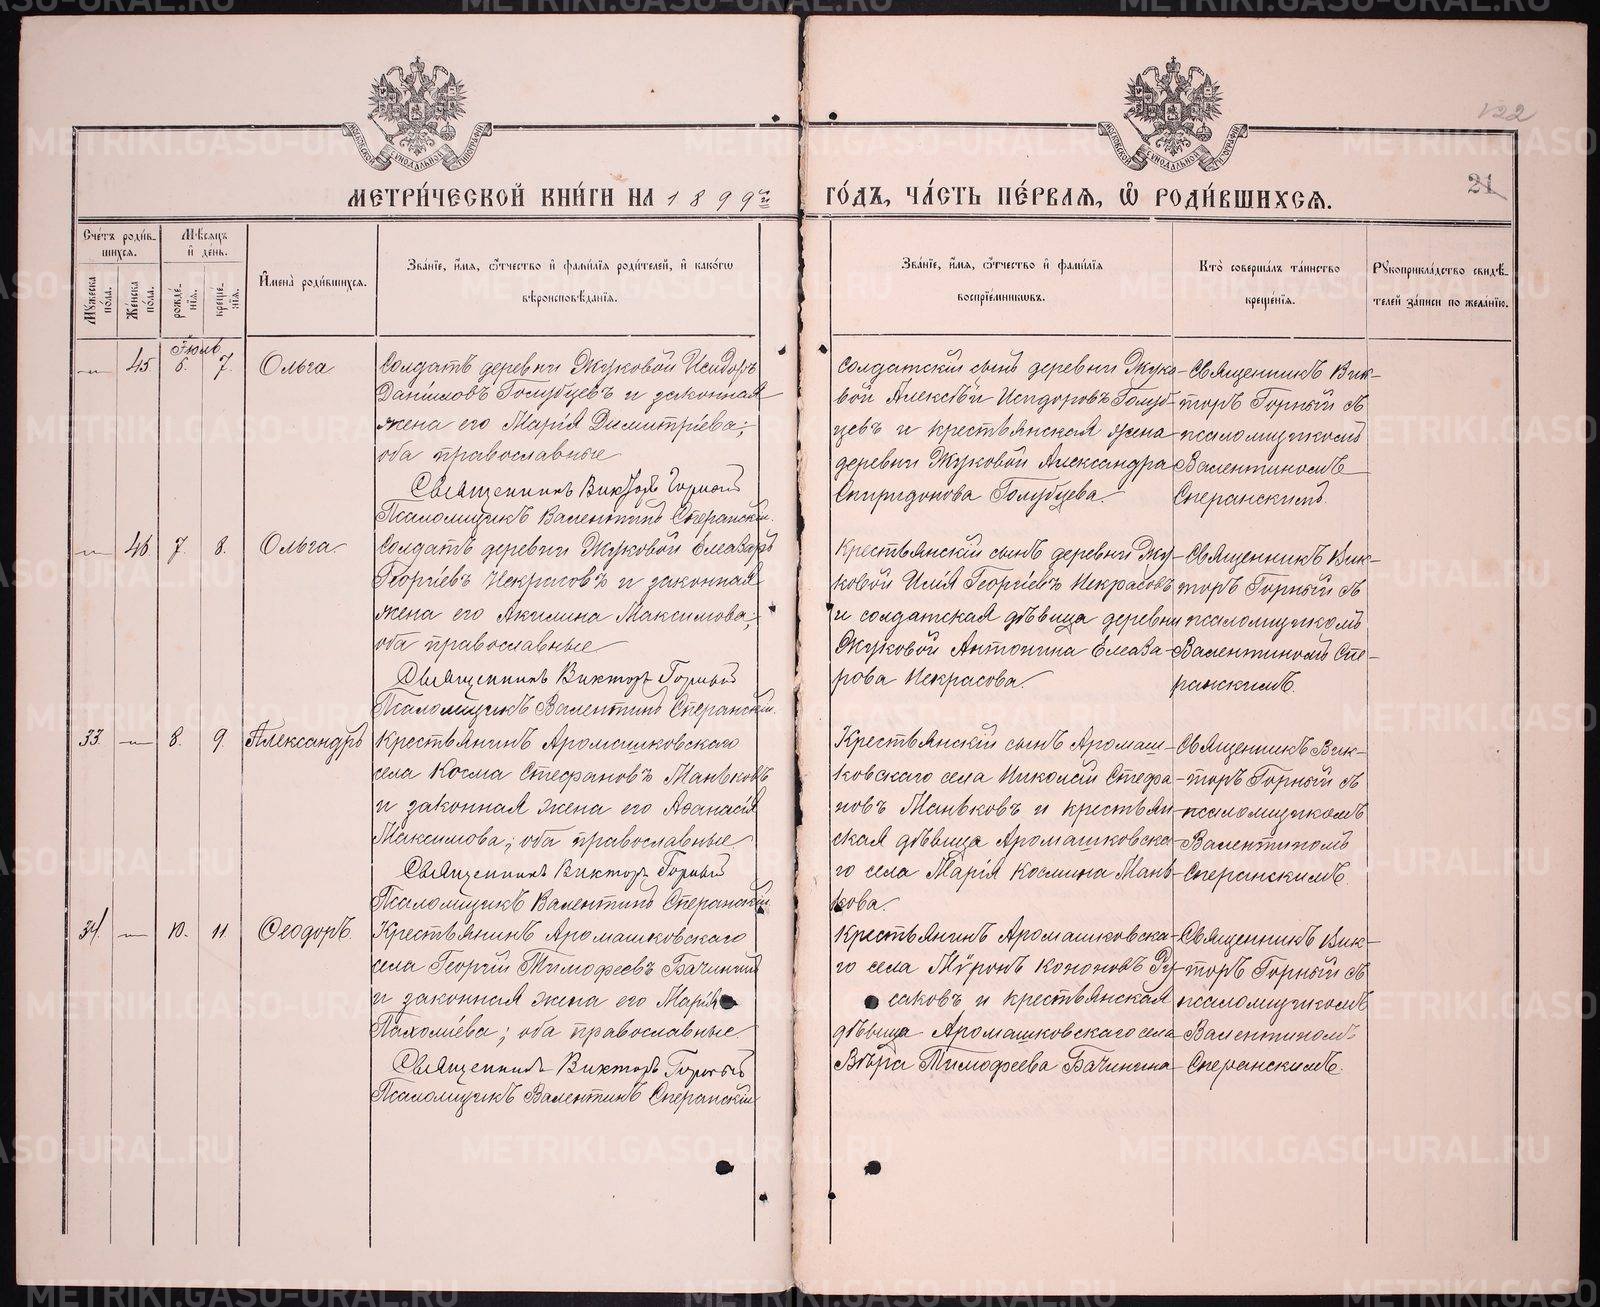 122
21
МЕТРИЧЕСКОЙ КНИГИ НА 1899й ГОДЪ, ЧАСТЬ ПЕРВАЯ, Ѽ РОДИВШИХСЯ.
Счетъ родив-
шихся.
Мѣсяцъ
и день.
Мужеска
пола.
Женска
пола.
рожде-
нія.
креще-
нія.
Имена родившихся.
Званіе, имя, отчество и фамилія родителей, и какого
вѣроисповѣданія.
Званіе, имя, отчество и фамилія
воспріемниковъ.
Кто совершалъ таинство
крещенія.
Рукоприкладство свидѣ-
телей записи по желанію.
Іюль
— 45. 6. 7. Ольга
Солдатъ деревни Жуковой Исидоръ
Даніиловъ Голубцевъ и законная
жена его Марія Димитріева;
оба православные
Священникъ Викторъ Горный
Псаломщикъ Валентинъ Сперанскій.
Солдатскій сынъ деревни Жуко-
вой Алексѣй Исидоровъ Голуб-
цевъ и крестьянская жена
деревни Жуковой Александра
Спиридонова Голубцева.
Священникъ Вик-
торъ Горный съ
псаломщикомъ
Валентиномъ
Сперанскимъ.
— 46. 7. 8. Ольга
Солдатъ деревни Жуковой Елеазаръ
Георгіевъ Некрасовъ и законная
жена его Акилина Максимова;
оба православные
Священникъ Викторъ Горный
Псаломщикъ Валентинъ Сперанскій.
Крестьянскій сынъ деревни Жу-
ковой Илія Георгіевъ Некрасовъ
и солдатская дѣвица деревни
Жуковой Антонина Елеаза-
рова Некрасова.
Священникъ Вик-
торъ Горный съ
псаломщикомъ
Валентиномъ Спе-
ранскимъ.
33. — 8. 9. Александръ
Крестьянинъ Аромашковскаго
села Косма Стефановъ Маньковъ
и законная жена его Афанасія
Максимова; оба православные
Священникъ Викторъ Горный
Псаломщикъ Валентинъ Сперанскій
Крестьянскій сынъ Аромаш-
ковскаго села Николай Стефа-
новъ Маньковъ и крестьян-
ская дѣвица Аромашковска-
го села Марія Космина Мань-
кова.
Священникъ Вик-
торъ Горный съ
псаломщикомъ
Валентиномъ
Сперанскимъ.
34. — 10. 11. Ѳеодоръ.
Крестьянинъ Аромашковскаго
села Георгій Тимофеевъ Бачининъ
и законная жена его Марія
Пахоміева; оба православные.
Священникъ Викторъ Горный
Псаломщикъ Валентинъ Сперанскій
Крестьянинъ Аромашковска-
го села Мѵронъ Кононовъ Ру-
саковъ и крестьянская
дѣвица Аромашковскаго села
Вѣра Тимофеева Бачинина
Священникъ Вик-
торъ Горный съ
псаломщикомъ
Валентиномъ
Сперанскимъ.
METRIKI.GASO-URAL.RU